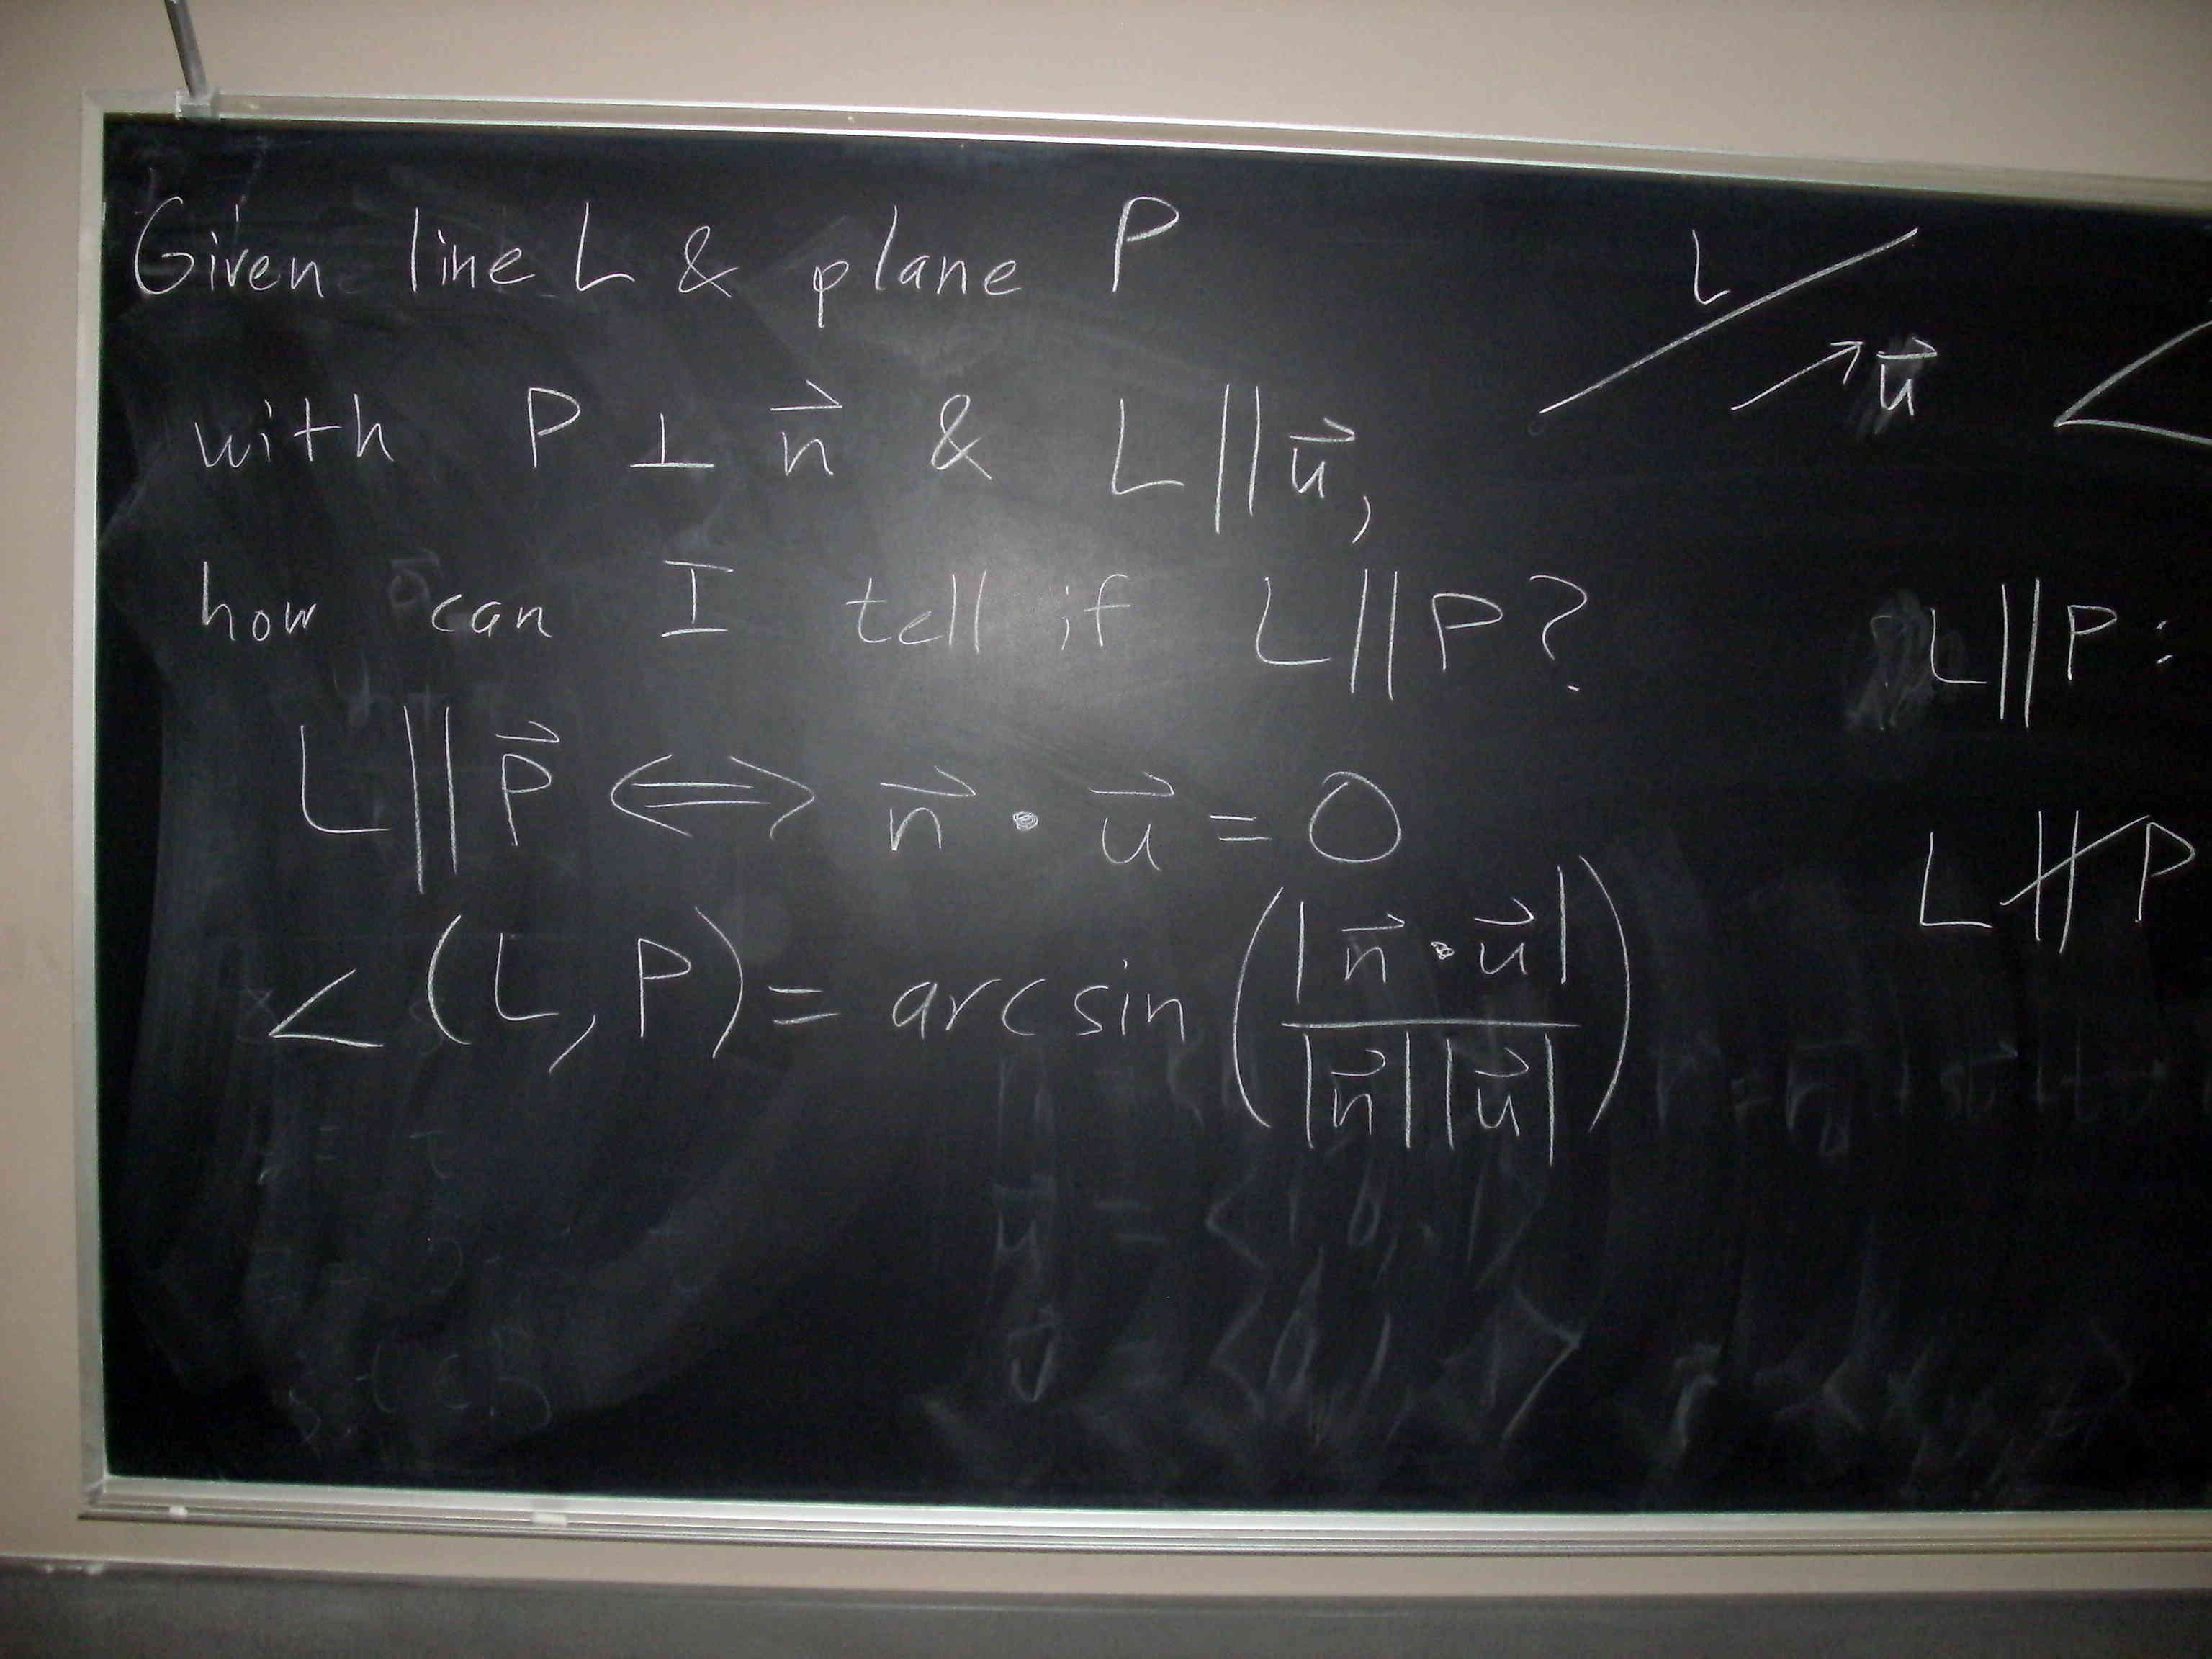 Given line L & plane P
with P ⊥ n⃗ & L ∥ u⃗,
how can I tell if L ∥ P?
L ∥ P⃗ ⟺ n⃗ · u⃗ = 0
∠ (L, P) = arcsin (|n⃗ · u⃗| / |n⃗| |u⃗|)
L
u⃗
L ∥ P :
L ∦ P